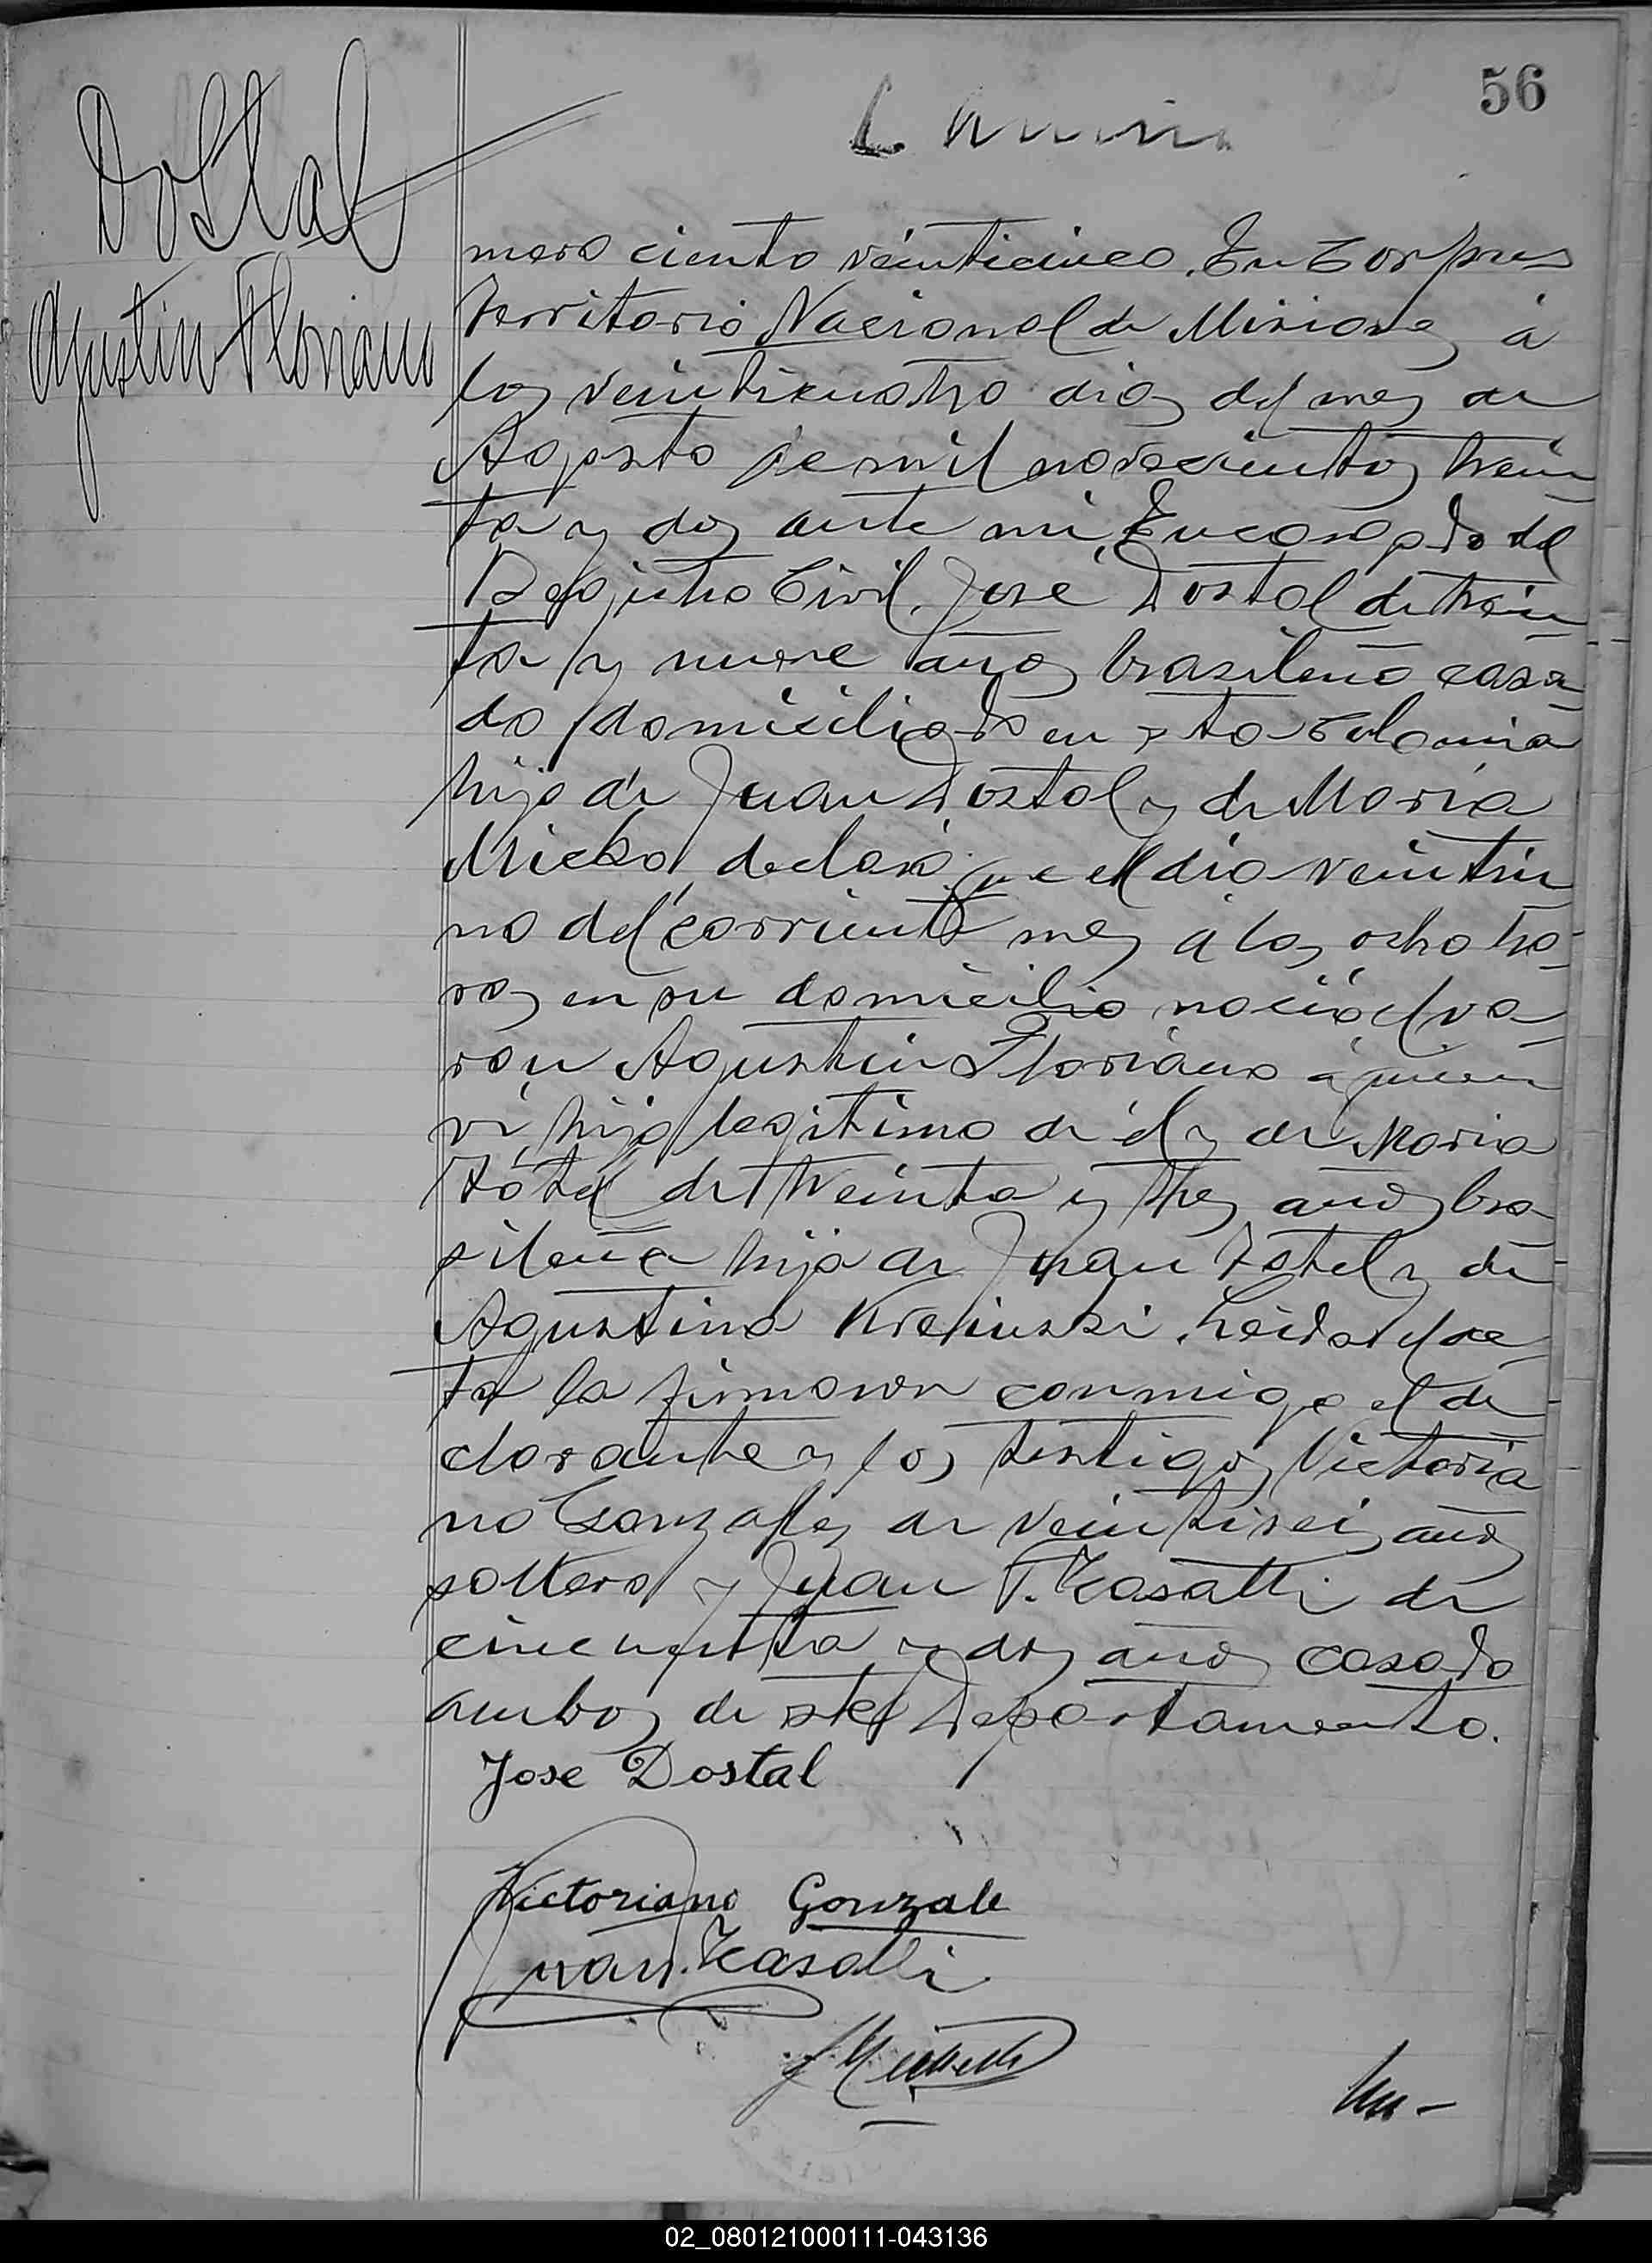 56
Dostal
Agustin Floriano
mero ciento veinticinco. En Corpus
Territorio Nacional de Misiones á
los veinticuatro dias del mes de
Agosto de mil novecientos trein
ta y dos ante mi, Encargado del
Registro Civil, José Dostal de trein
ta y nueve años brasileño casa
do domiciliado en esta Colonia
hijo de Juan Dostal y de Maria
declaró que el dia veintiu
no del corriente mes á las ocho ho
ras en su domicilio nació el va
ron Agustin Floriano á quien
vi, hijo legitimo de él y de Maria
de treinta y tres años bra
sileña hija de Juan y de
Agustina Leida el ac
ta la firmaron conmigo el de
clarante y los testigos Victoria
no Gonzalez de veintiseis años
soltero y Juan T. Kasalli de
cincuenta y dos años casado
ambos de este Departamento.
Jose Dostal
Victoriano Gonzale
Juan T. Kasalli
02_080121000111-043136